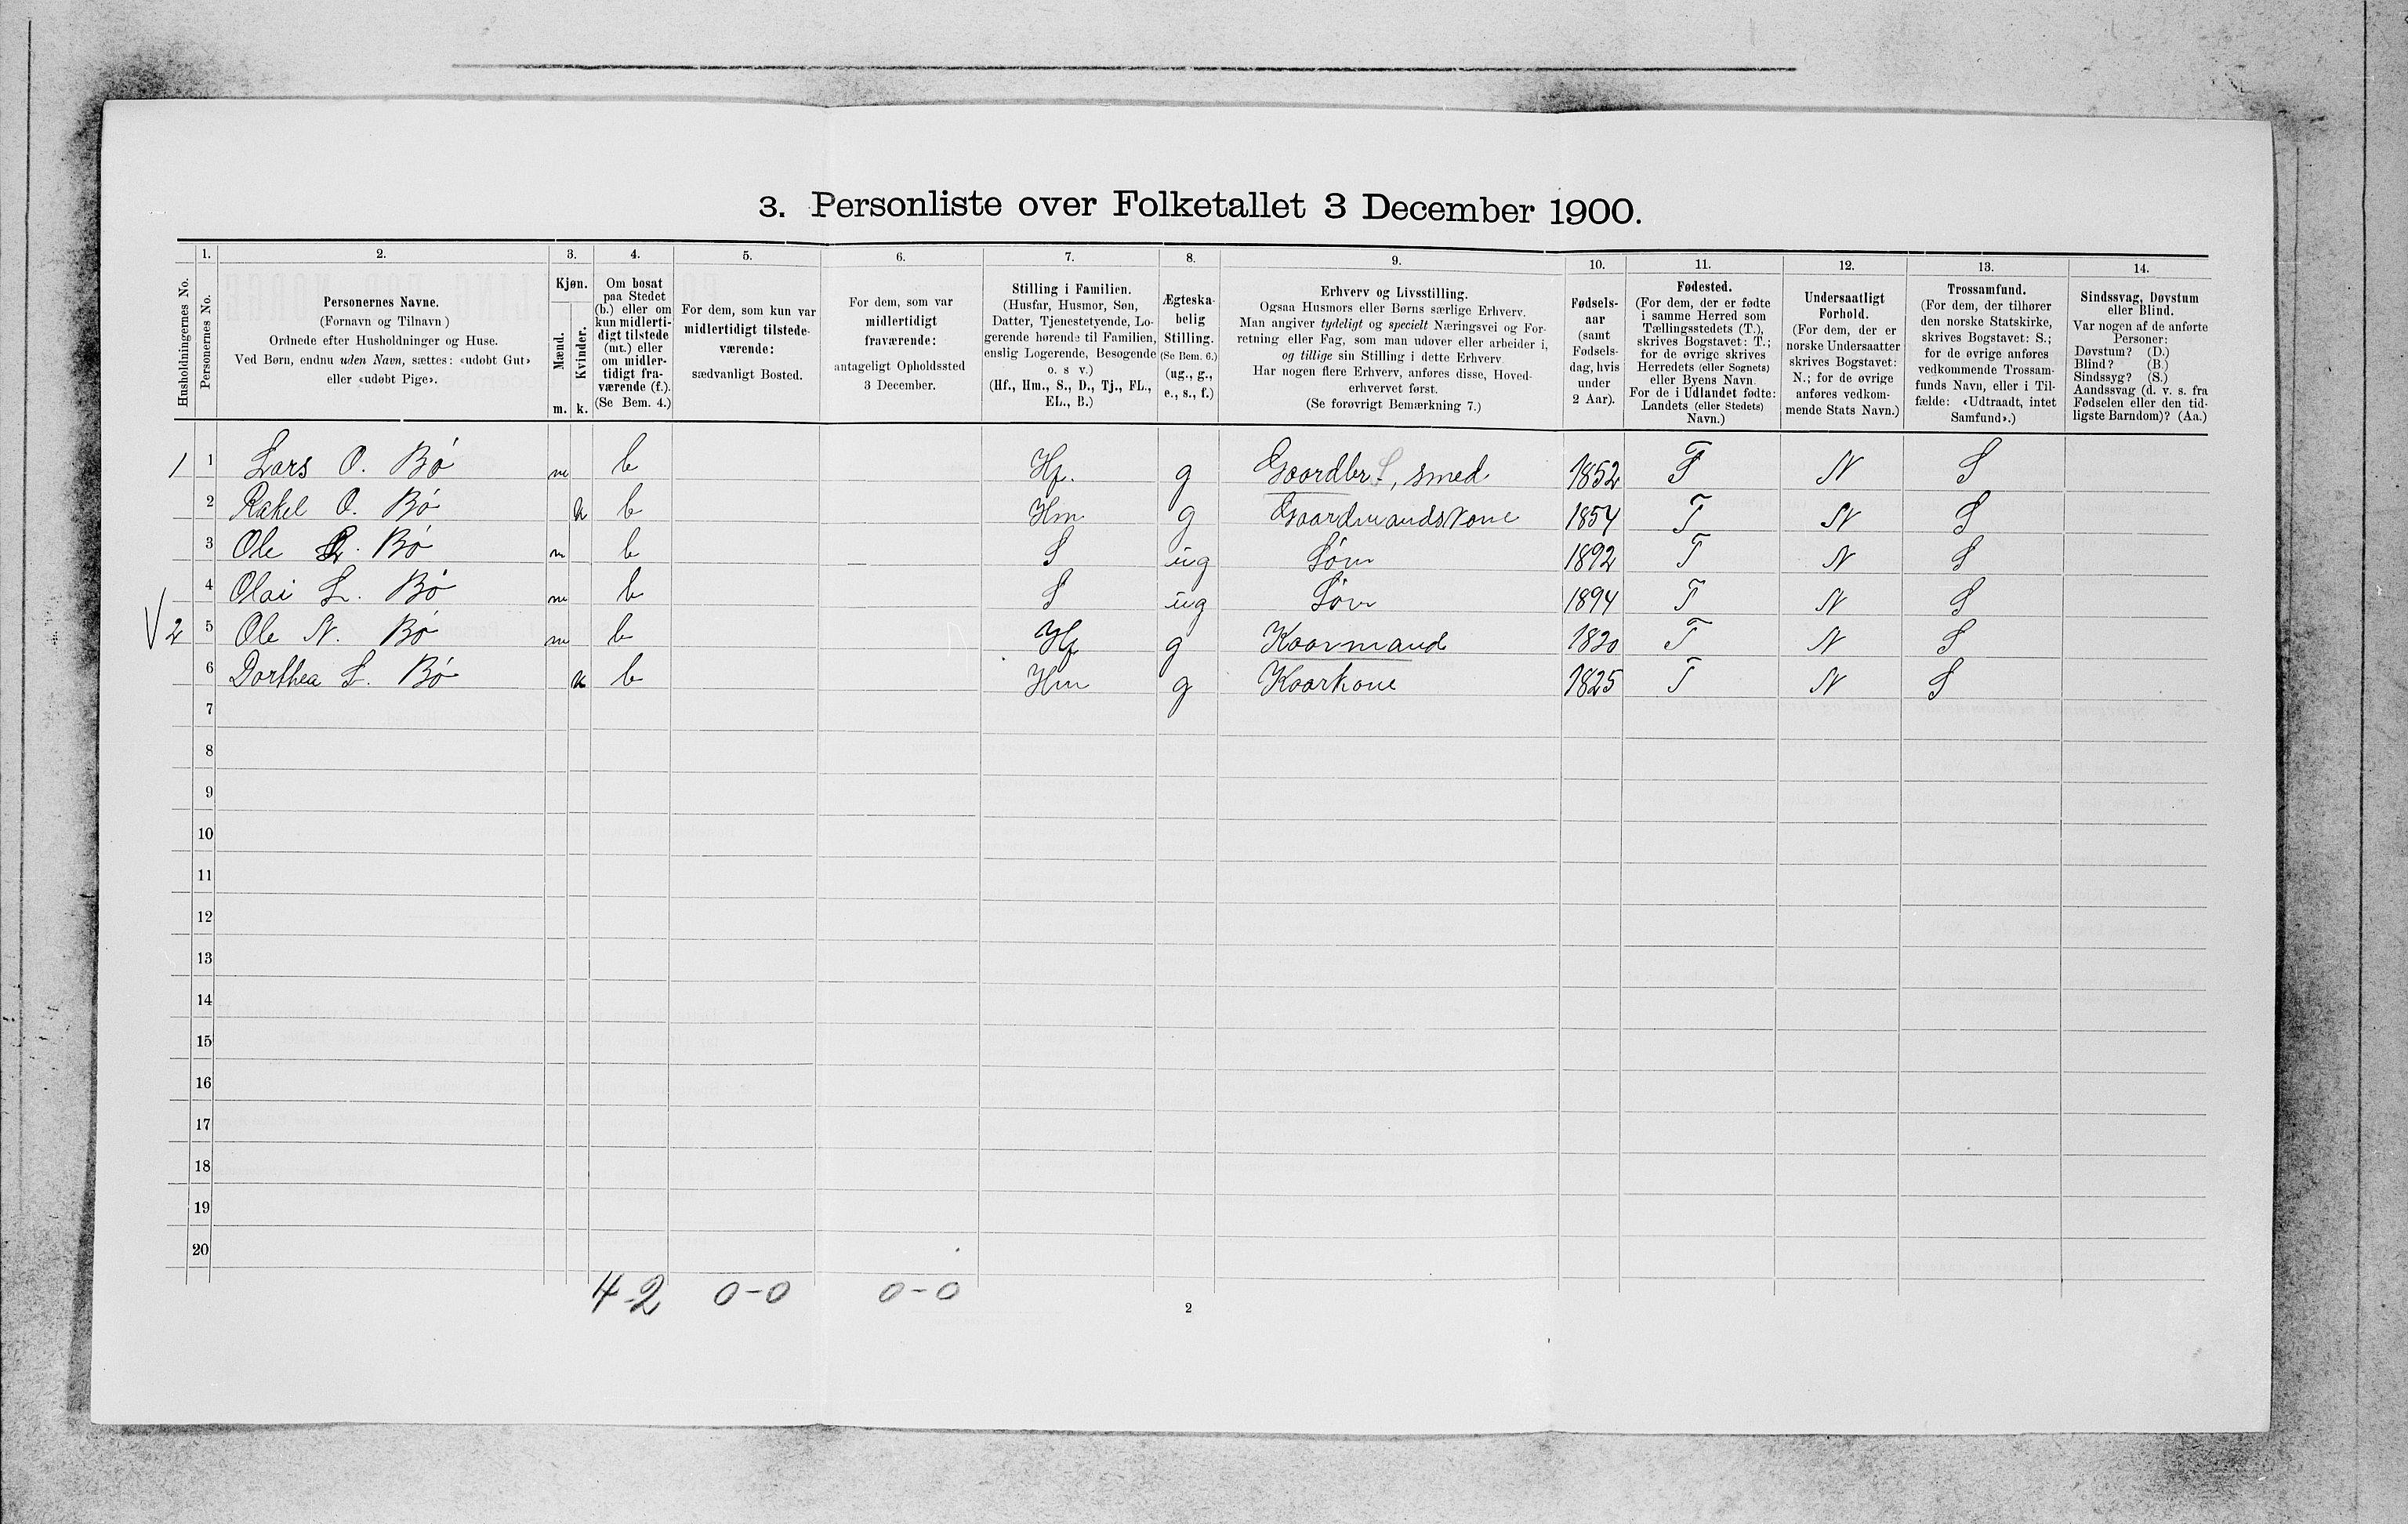 3. Personliste over Folketallet 3 December 1900.
1. 2. 3. 4. 5. 6. 7. 8. 9. 10. 11. 12. 13. 14.
Husholdningernes No.
Personernes No.
Personernes Navne.
(Fornavn og Tilnavn.)
Ordnede efter Husholdninger og Huse.
Ved Børn, endnu uden Navn, sættes: «udøbt Gut»
eller «udøbt Pige».
Kjøn.
Mænd.
Kvinder.
m. k.
Om bosat
paa Stedet
(b.) eller om
kun midlerti-
digt tilstede
(mt.) eller
om midler-
tidigt fra-
værende (f.).
(Se Bem. 4.)
For dem, som kun var
midlertidigt tilstede-
værende:
sædvanligt Bosted.
For dem, som var
midlertidigt
fraværende:
antageligt Opholdssted
3 December.
Stilling i Familien.
(Husfar, Husmor, Søn,
Datter, Tjenestetyende, Lo-
gerende hørende til Familien,
enslig Logerende, Besøgende
o. s v.)
(Hf., Hm., S., D., Tj., FL.,
EL., B.)
Ægteska-
belig
Stilling.
(Se Bem. 6.)
(ug., g.,
e., s., f.)
Erhverv og Livsstilling.
Ogsaa Husmors eller Børns særlige Erhverv.
Man angiver tydeligt og specielt Næringsvei og For-
retning eller Fag, som man udøver eller arbeider i,
og tillige sin Stilling i dette Erhverv.
Har nogen flere Erhverv, anføres disse, Hoved-
erhvervet først.
(Se forøvrigt Bemærkning 7.)
Fødsels-
aar
(samt
Fødsels-
dag, hvis
under
2 Aar).
Fødested.
(For dem, der er fødte
i samme Herred som
Tællingsstedets (T.),
skrives Bogstavet: T.;
for de øvrige skrives
Herredets (eller Sognets)
eller Byens Navn.
For de i Udlandet fødte:
Landets (eller Stedets)
Navn.)
Undersaatligt
Forhold.
(For dem, der er
norske Undersaatter
skrives Bogstavet:
N.; for de øvrige
anføres vedkom-
mende Stats Navn.)
Trossamfund.
(For dem, der tilhører
den norske Statskirke,
skrives Bogstavet: S.;
for de øvrige anføres
vedkommende Trossam-
funds Navn, eller i Til-
fælde: «Udtraadt, intet
Samfund».)
Sindssvag, Døvstum
eller Blind.
Var nogen af de anførte
Personer:
Døvstum? (D.)
Blind? (B.)
Sindssyg? (S.)
Aandssvag (d. v. s. fra
Fødselen eller den tid-
ligste Barndom)? (Aa.)
1 1 Lars O. Bø m b Hf. g Gaardbr. S, smed 1852 T N S
2 Rakel O. Bø k b Hm g Gaardmandskone 1854 T N S
3 Ole L. Bø m b S ug Søn 1892 T N S
4 Olai L. Bø m b S ug Søn 1894 T N S
2 5 Ole N. Bø m b Hf g Kaarmand 1820 T N S
6 Dorthea L. Bø k b Hm g Kaarkone 1825 T N S
7
8
9
10
11
12
13
14
15
16
17
18
19
20
4-2 0-0 0-0
2